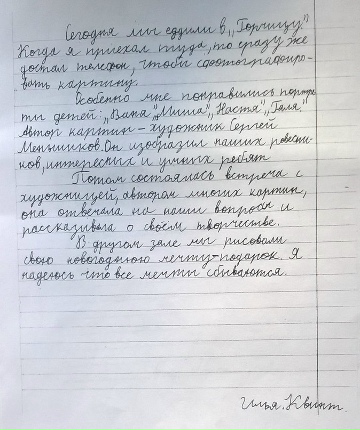 Сегодня мы ездили в „Горчицу."
Когда я приехал туда, то сразу же
достал телефон, чтобы сфотографиро-
вать картину.
Особенно мне понравились портре-
ты детей: „Ваня", „Миша", „Настя", „Галя".
Автор картин – художник Сергей
Меньшиков. Он изобразил наших ровесни-
ков, интересных и умных ребят
Потом состоялась встреча с
художницей, автором многих картин,
она отвечала на наши вопросы и
рассказывала о своём творчестве.
В другом зале мы рисовали
свою новогоднюю мечту-подарок. Я
надеюсь что все мечты сбываются.
Илья. Квинт.